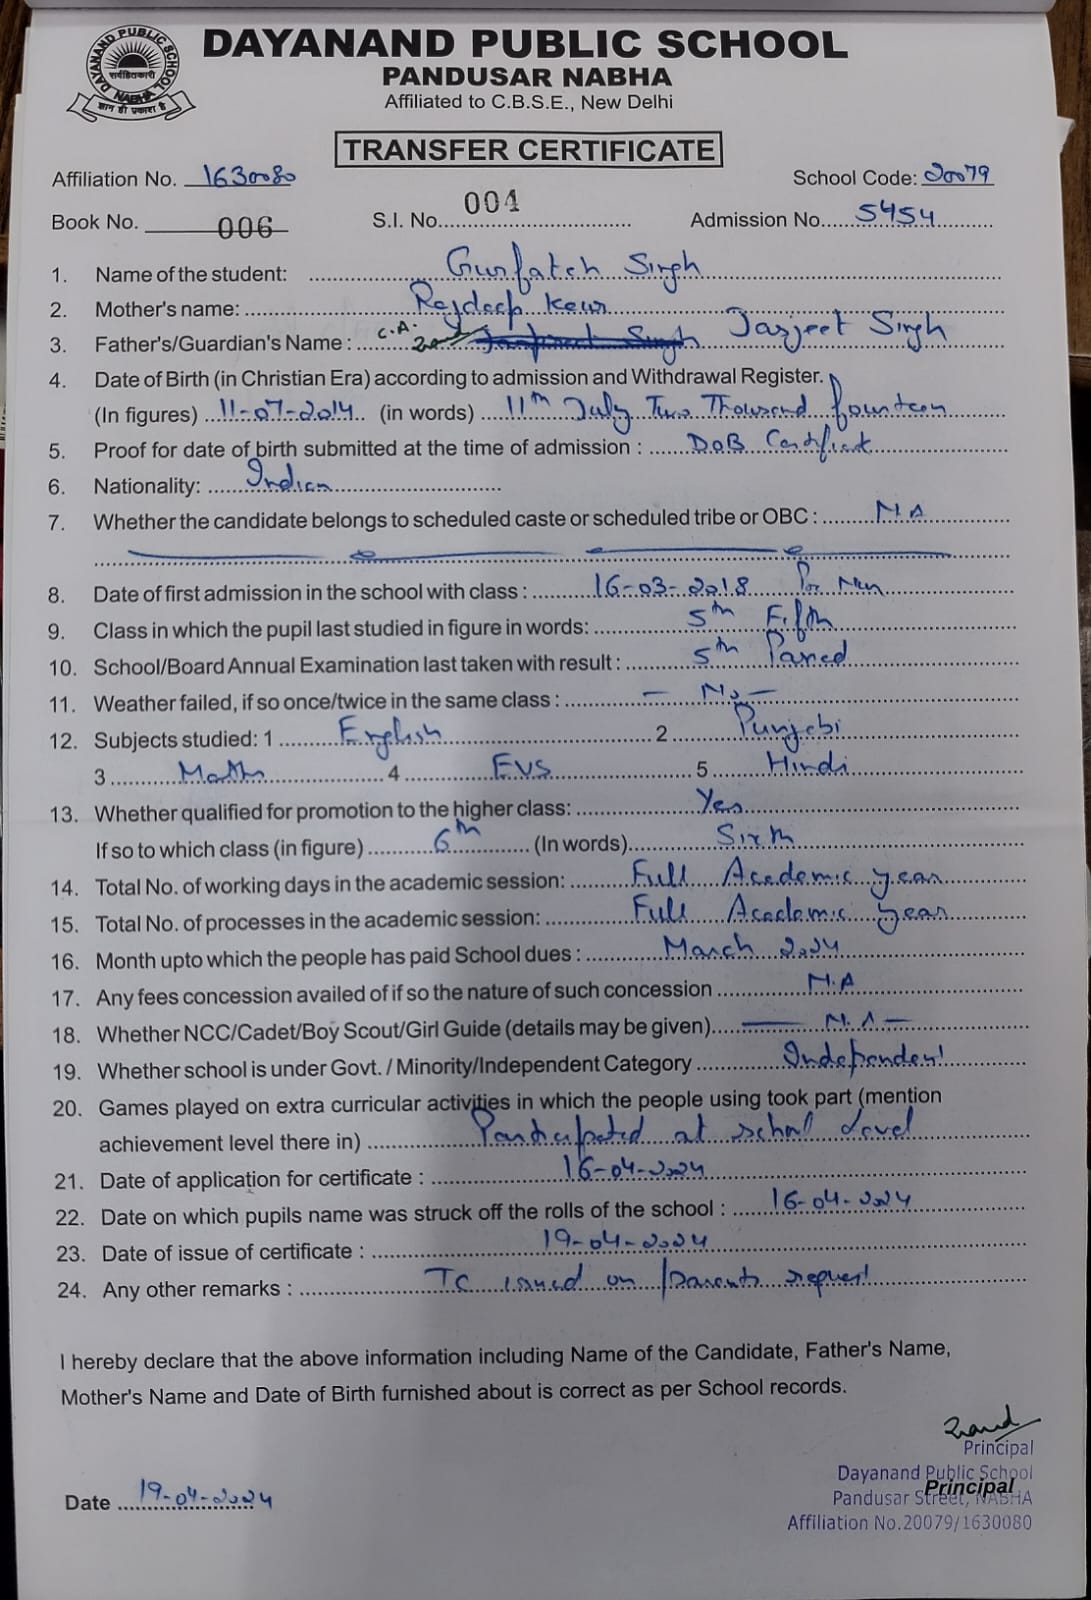 DAYANAND PUBLIC SCHOOL
DAYANAND PUBLIC SCHOOL
सर्वहितकारी
NABHA
ज्ञान ही प्रकाश है
PANDUSAR NABHA
Affiliated to C.B.S.E., New Delhi
TRANSFER CERTIFICATE
Affiliation No. 1630080 School Code: 20079
Book No. 006 S.I. No. 004 Admission No. 5454
1. Name of the student: Gurfateh Singh
2. Mother's name: Rajdeep Kaur
3. Father's/Guardian's Name : C.A. Singh Jasjeet Singh
4. Date of Birth (in Christian Era) according to admission and Withdrawal Register.
(In figures) 11-07-2014 (in words) 11th July Two Thousand fourteen
5. Proof for date of birth submitted at the time of admission : DOB Certificate
6. Nationality: Indian
7. Whether the candidate belongs to scheduled caste or scheduled tribe or OBC : N.A
8. Date of first admission in the school with class : 16-03-2018 Pre Nur
9. Class in which the pupil last studied in figure in words: 5th Fifth
10. School/Board Annual Examination last taken with result : 5th Passed
11. Weather failed, if so once/twice in the same class : - No -
12. Subjects studied: 1 English 2 Punjabi
3 Math 4 EVS 5 Hindi
13. Whether qualified for promotion to the higher class: Yes
If so to which class (in figure) 6th (In words) Sixth
14. Total No. of working days in the academic session: Full Academic year
15. Total No. of processes in the academic session: Full Academic year
16. Month upto which the people has paid School dues : March 2024
17. Any fees concession availed of if so the nature of such concession N.A
18. Whether NCC/Cadet/Boy Scout/Girl Guide (details may be given) - N.A -
19. Whether school is under Govt. / Minority/Independent Category Independent
20. Games played on extra curricular activities in which the people using took part (mention
achievement level there in) Participated at school level
21. Date of application for certificate : 16-04-2024
22. Date on which pupils name was struck off the rolls of the school : 16-04-2024
23. Date of issue of certificate : 19-04-2024
24. Any other remarks : TC issued on parents request
I hereby declare that the above information including Name of the Candidate, Father's Name,
Mother's Name and Date of Birth furnished about is correct as per School records.
Principal
Dayanand Public School
Principal
Pandusar Street, NABHA
Affiliation No.20079/1630080
Date 19-04-2024